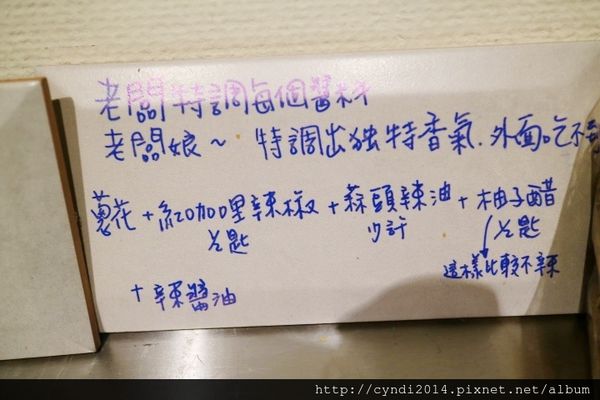 老闆特調每個醬料
老闆娘~ 特調出独特香氣.外面吃不到
蔥花+紅咖哩辣椒+蒜頭辣油+柚子醋
½匙 少許 ½匙
這樣比較不辣
+辣醬油
http://cyndi2014.pixnet.net/album